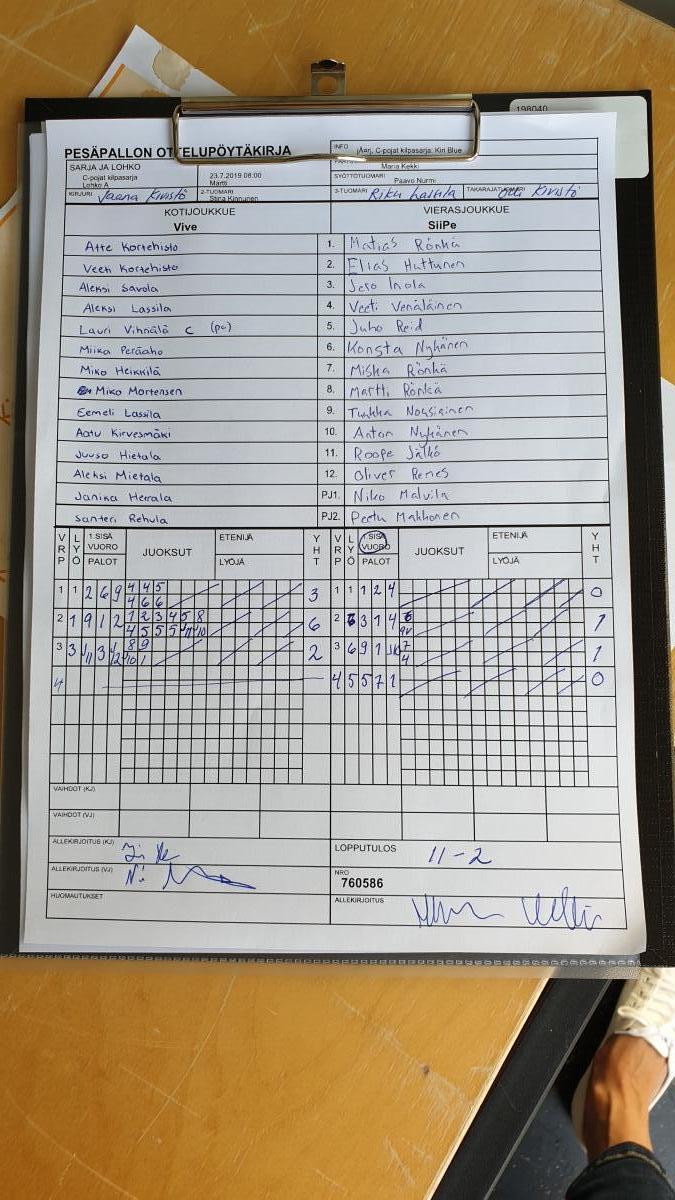 198040
PESÄPALLON OTTELUPÖYTÄKIRJA
INFO jÄarj, C-pojat kilpasarja: Kiri Blue
SARJA JA LOHKO
C-pojat kilpasarja
Lohko A
23.7.2019 08:00
Martti
Maria Kekki
SYÖTTÖTUOMARI
Paavo Nurmi
KIRJURI Jaana Kivistö
2-TUOMARI
Stina Kinnunen
3-TUOMARI Riku
TAKARAJATUOMARI Kivistö
KOTIJOUKKUE VIERASJOUKKUE
Vive SiiPe
Atte Kortehisto 1. Matias Rönkä
Veeti Kortehisto 2. Elias Huttunen
Aleksi Savola 3. Jero Inola
Aleksi Lassila 4. Veeti Venäläinen
Lauri Vihnälä C (pe) 5. Juho Reid
Miika Peräaho 6. Konsta Nykänen
Miko Heikkilä 7. Miska Rönkä
Miko Mortensen 8. Martti Rönkä
Eemeli Lassila 9. Tuukka Nousiainen
Aatu Kirvesmäki 10. Anton Nykänen
Juuso Hietala 11. Roope Jälkö
Aleksi Mietala 12. Oliver Renes
Janika Herrala PJ1. Niko Malvila
Santeri Rehula PJ2. Peetu Makkonen
VRP LYÖ 1.SISÄ VUORO PALOT JUOKSUT ETENIJÄ LYÖJÄ YHT VRP LYÖ 1.SISÄ VUORO PALOT JUOKSUT ETENIJÄ LYÖJÄ YHT
1 1 2 6 9 4 4 5 3 1 1 1 2 4 0
4 6 6
2 1 9 1 2 1 2 3 4 5 8 6 2 3 1 4 6 1
4 5 5 5 J11 J10
3 3 J11 3 J12 8 9 2 3 6 9 1 J10 7 1
10 1 4
4 4 5 5 7 1 0
VAIHDOT (KJ)
VAIHDOT (VJ)
ALLEKIRJOITUS (KJ)
LOPPUTULOS 11-2
ALLEKIRJOITUS (VJ)
NRO
760586
HUOMAUTUKSET
ALLEKIRJOITUS